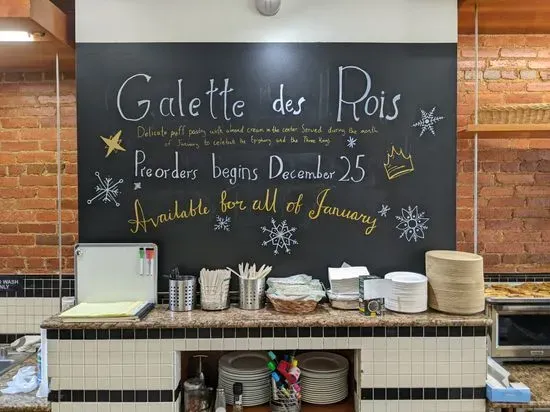 Galette des Rois
Delicate puff pastry with almond cream in the center. Served during the month
of January to celebrate the Epiphany and the Three Kings.
Preorders begins December 25
Available for all of January
ONLY